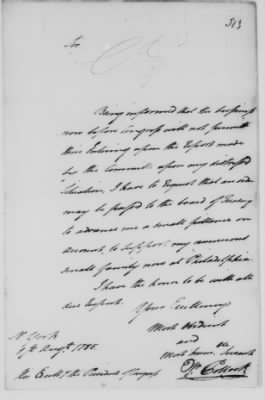 313
Sir
Being informed that the business
now before Congress will not permit
their Entering upon the Report made
by the Committe upon my distressed
situation, I have to Request that an order
may be passed to the board of Treasury
to advance me a small pittance on
account, to support my numerous
small family now at Philadelphia.
I have the honor to be with all
due respect.
Your Excellency
Most Obedient
and
most hum. Servant
Pollock
N. York
Augt. 1785.
His Excelly. the President of Congress